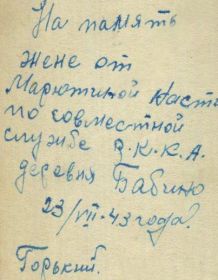 На память
Жене от
Марютиной Насти
по совместной
службе Р.К.К.А.
деревня Бабино
23/VII-43 года.
Горький.